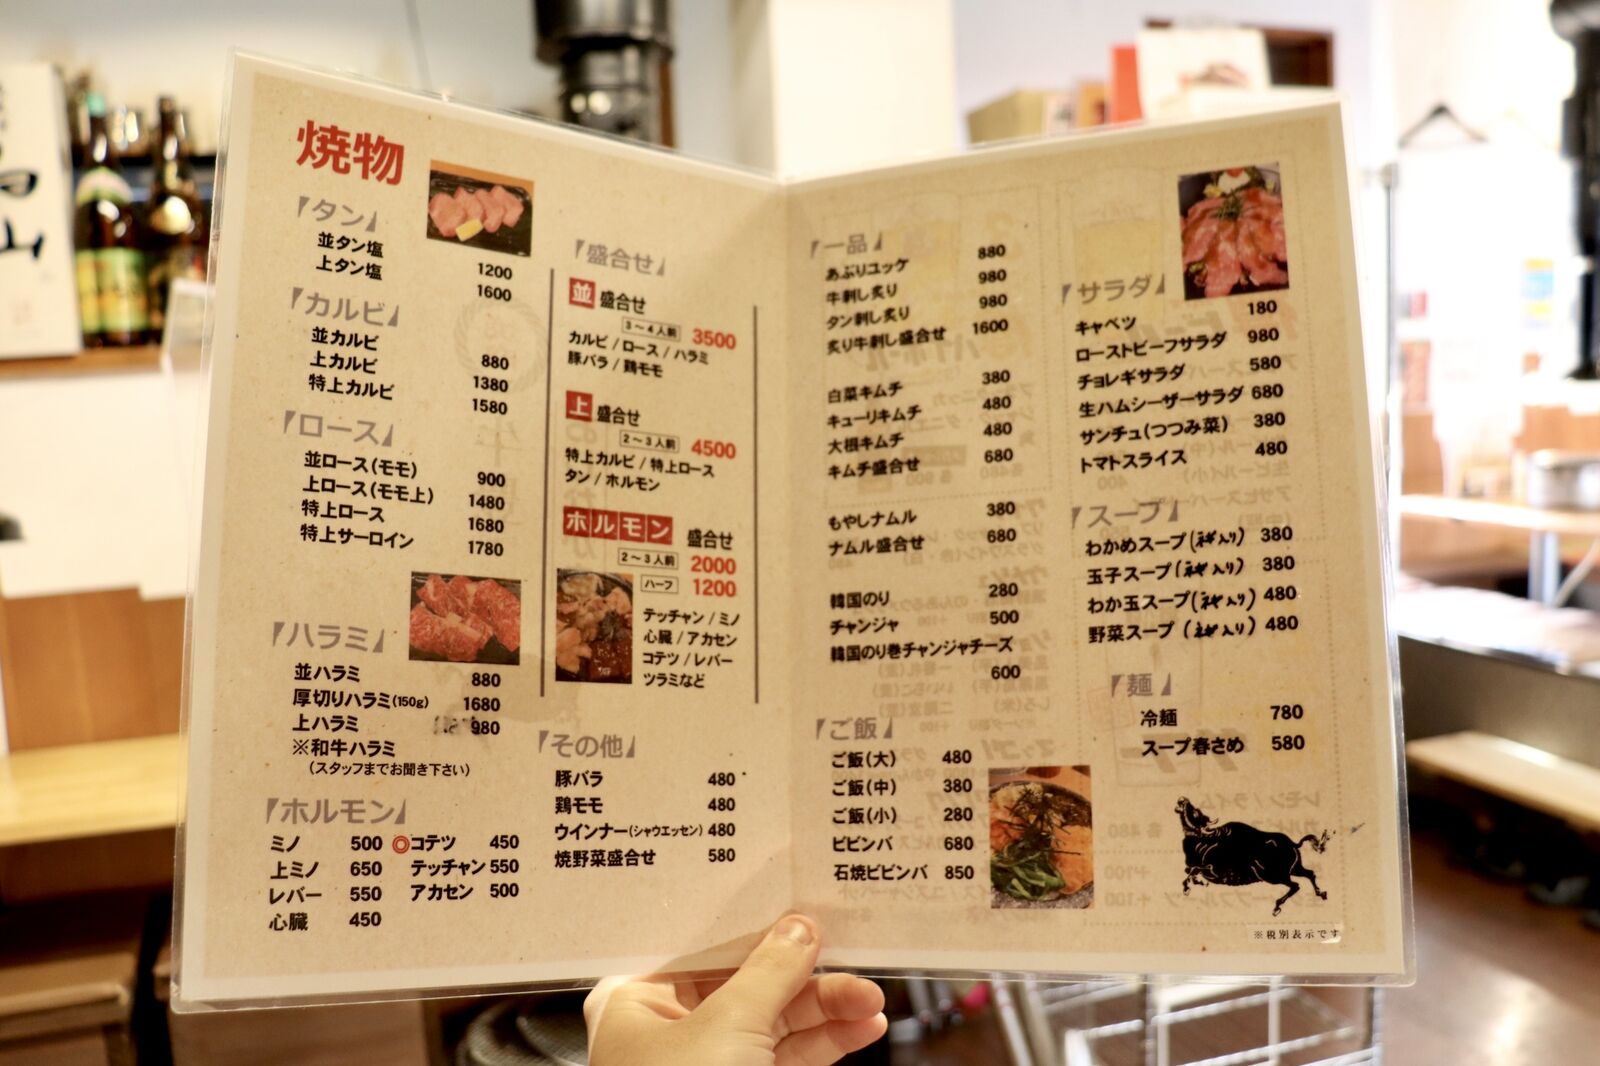 焼物
『タン』
並タン塩 1200
上タン塩 1600
『カルビ』
並カルビ 880
上カルビ 1380
特上カルビ 1580
『ロース』
並ロース(モモ) 900
上ロース(モモ上) 1480
特上ロース 1680
特上サーロイン 1780
『ハラミ』
並ハラミ 880
厚切りハラミ(150g) 1680
上ハラミ 980
※和牛ハラミ
(スタッフまでお聞き下さい)
『ホルモン』
ミノ 500 ◎コテツ 450
上ミノ 650 テッチャン 550
レバー 550 アカセン 500
心臓 450
『盛合せ』
並 盛合せ
3～4人前 3500
カルビ/ロース/ハラミ
豚バラ/鶏モモ
上 盛合せ
2～3人前 4500
特上カルビ/特上ロース
タン/ホルモン
ホルモン 盛合せ
2～3人前 2000
ハーフ 1200
テッチャン/ミノ
心臓/アカセン
コテツ/レバー
ツラミなど
『その他』
豚バラ 480
鶏モモ 480
ウインナー(シャウエッセン) 480
焼野菜盛合せ 580
『一品』
あぶりユッケ 880
牛刺し炙り 980
タン刺し炙り 980
炙り牛刺し盛合せ 1600
白菜キムチ 380
キューリキムチ 480
大根キムチ 480
キムチ盛合せ 680
もやしナムル 380
ナムル盛合せ 680
韓国のり 280
チャンジャ 500
韓国のり巻チャンジャチーズ
600
『ご飯』
ご飯(大) 480
ご飯(中) 380
ご飯(小) 280
ビビンバ 680
石焼ビビンバ 850
『サラダ』
キャベツ 180
ローストビーフサラダ 980
チョレギサラダ 580
生ハムシーザーサラダ 680
サンチュ(つつみ菜) 380
トマトスライス 480
『スープ』
わかめスープ(ネギ入り) 380
玉子スープ(ネギ入り) 380
わか玉スープ(ネギ入り) 480
野菜スープ(ネギ入り) 480
『麺』
冷麺 780
スープ春さめ 580
※税別表示です